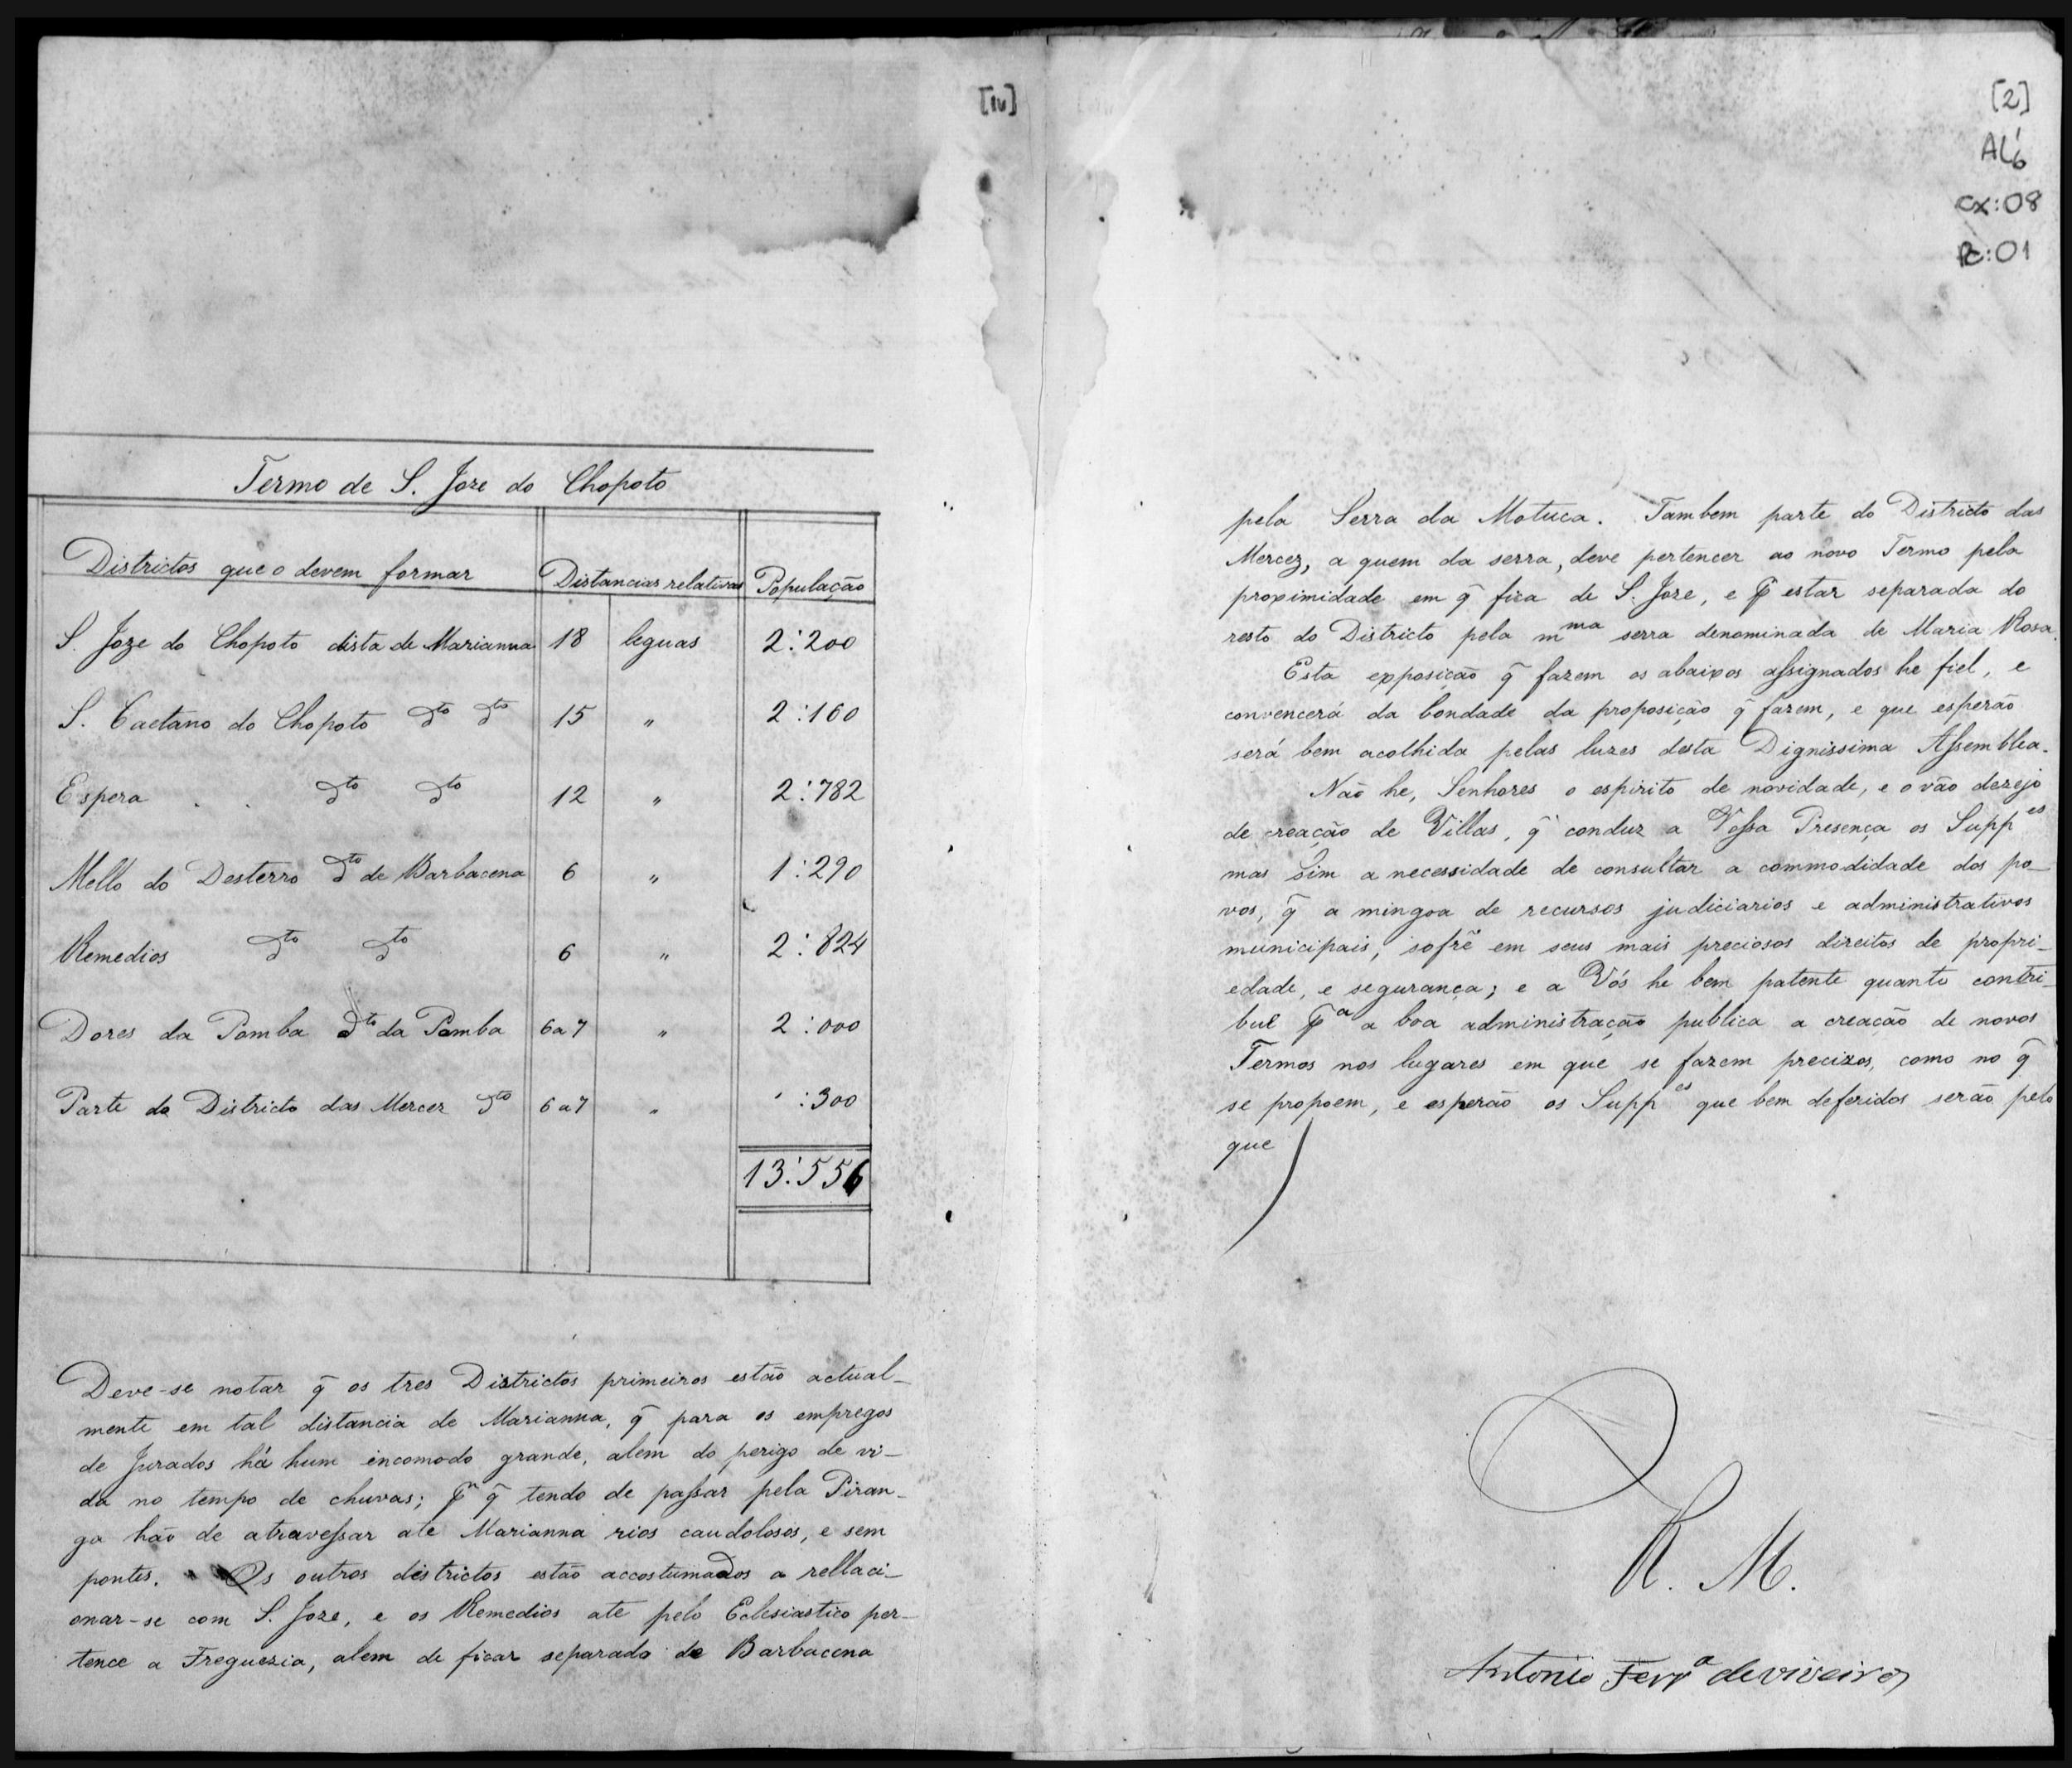 [1v]
Termo de S. Joze do Chopoto
Districtos que o devem formar Distancias relativas População
S. Joze do Chopoto dista de Marianna 18 leguas 2:200
S. Caetano do Chopoto dto dto 15 " 2:160
Espera . . dto dto 12 " 2:782
Mello do Desterro dto de Barbacena 6 " 1:290
Remedios dto dto 6 " 2:824
Dores da Pomba dto da Pomba 6 a 7 " 2:000
Parte do Districto das Mercez dto 6 a 7 " :300
13:556
Deve-se notar q̃ os tres Districtos primeiros estão actual-
mente em tal distancia de Marianna, q̃ para os empregos
de Jurados há hum incomodo grande, alem do perigo de vi-
da no tempo de chuvas; p̃ q̃ tendo de paſsar pela Piran-
ga hão de atraveſsar ate Marianna rios caudolosos, e sem
pontes. Os outros districtos estão accostumados a rellaci-
onar-se com S. Joze, e os Remedios ate pelo Eclesiastico per-
tence a Freguezia, alem de ficar separado de Barbacena
[2]
AL6
cx:08
Pc:01
pela Serra da Motuca. Tambem parte do Districto das
Mercez, a quem da serra, deve pertencer ao novo Termo pela
proximidade em q̃ fica de S. Joze, e p̃ estar separada do
resto do Districto pela mma serra denominada de Maria Rosa.
Esta exposição q̃ fazem os abaixos aſsignados he fiel, e
convencerá da bondade da proposição q̃ fazem, e que esperão
será bem acolhida pelas luzes desta Dignissima Aſsemblea.
Não he, Senhores o espirito de novidade, e o vão dezejo
de creação de Villas, q̃ conduz a Voſsa Presença os Suppes
mas sim a necessidade de consultar a commodidade dos po-
vos, q̃ a mingoa de recursos judiciarios e administrativos
municipais, sofrẽ em seus mais preciosos direitos de propri-
edade, e segurança; e a Vós he bem patente quanto contri-
bue pa a boa administração publica a creação de novos
Termos nos lugares em que se fazem precizos, como no q̃
se propoem, e esperão os Suppes que bem deferidos serão pelo
que
R. M.
Antonio Ferra de viveiros